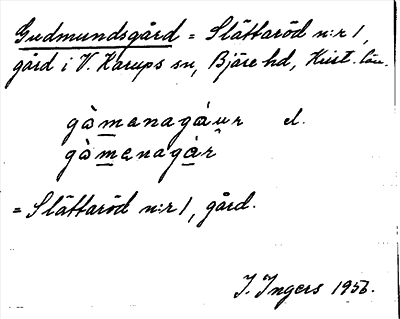 Gudmundsgård = Slättaröd n:r 1,
gård i V. Karups sn, Bjäre hd, Krist. län.
gòmanagáur el.
gòmenagàr
= Slättaröd n:r 1, gård.
I. Ingers 1956.